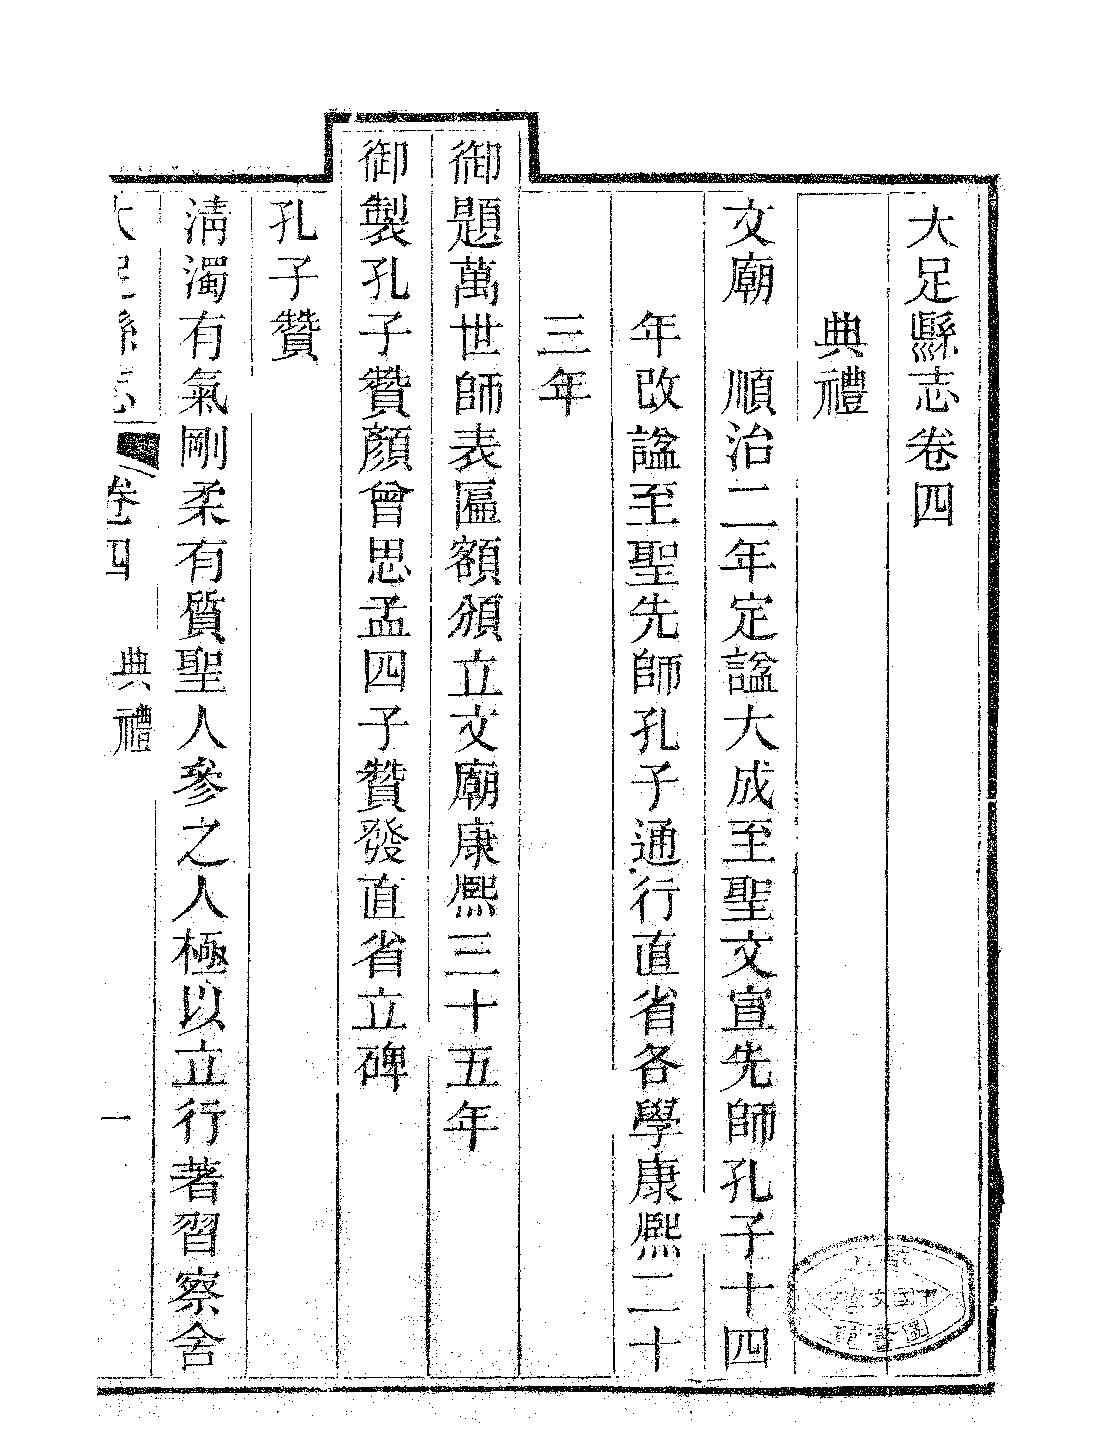 大足縣志卷四
典禮
文廟　順治二年定諡大成至聖文宣先師孔子十四
年改諡至聖先師孔子通行直省各學康熙二十
三年
御題萬世師表匾額頒立文廟康熙三十五年
御製孔子贊顏曾思孟四子贊發直省立碑
孔子贊
淸濁有氣剛柔有質聖人參之人極以立行著習察舍
大足縣志　卷四　典禮　一